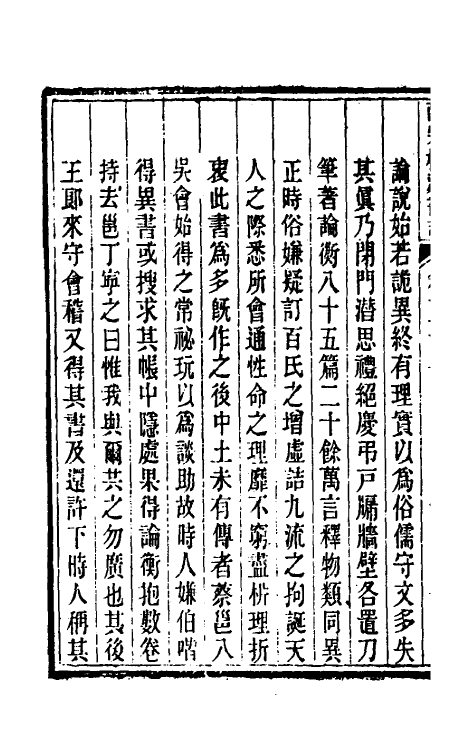 論說始若詭異終有理實以爲俗儒守文多失
其眞乃閉門潛思禮絕慶弔戸牖牆壁各置刀
筆著論衡八十五篇二十餘萬言釋物類同異
正時俗嫌疑訂百氏之增虛詰九流之拘誕天
人之際悉所會通性命之理靡不窮盡析理折
衷此書爲多旣作之後中土未有傳者蔡邕入
吳會始得之常祕玩以爲談助故時人嫌伯喈
得異書或搜求其帳中隱處果得論衡抱數卷
持去邕丁寧之曰惟我與爾共之勿廣也其後
王郎來守會稽又得其書及還許下時人稱其